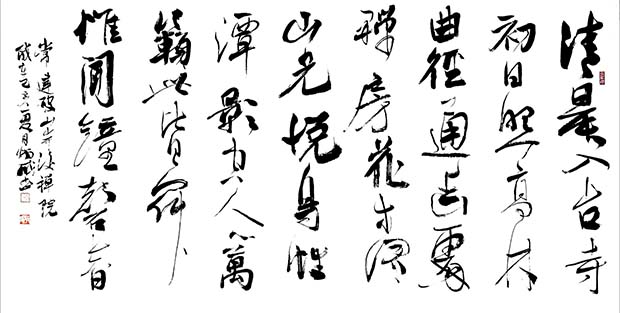 清晨入古寺
初日照高林
曲徑通幽處
禪房花木深
山光悦鳥性
潭影空人心萬
籟此皆寂
惟聞鐘磬音
常建破山寺後禪院
歲在己丑夏月